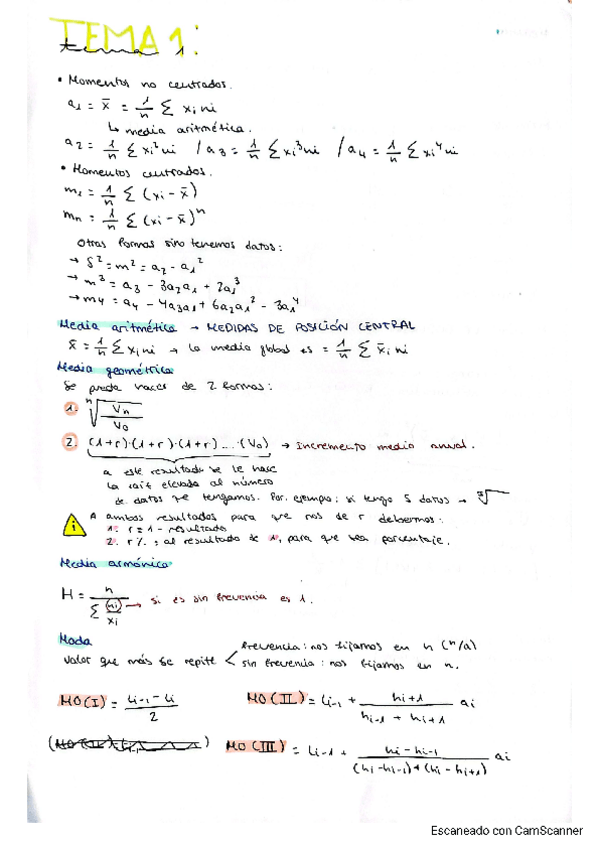 TEMA 1:
tema 1
• Momentos no centrados.
a1 = x̄ = 1/n Σ xi ni
↳ media aritmética.
a2 = 1/n Σ xi² ni / a3 = 1/n Σ xi³ ni / a4 = 1/n Σ xi⁴ ni
• Momentos centrados.
m1 = 1/n Σ (xi - x̄)
mn = 1/n Σ (xi - x̄)ⁿ
Otras formas sino tenemos datos:
→ S² = m² = a2 - a1²
→ m³ = a3 - 3a2a1 + 2a1³
→ m4 = a4 - 4a3a1 + 6a2a1² - 3a1⁴
Media aritmética → MEDIDAS DE POSICIÓN CENTRAL
x̄ = 1/n Σ xi ni → la media global es = 1/n Σ x̄i ni
Media geométrica
Se puede hacer de 2 formas:
1. ⁿ√(Vn/V0)
2. (1+r)·(1+r)·(1+r)....·(V0) → Incremento medio anual.
a este resultado se le hace
la raíz elevada al número
de datos que tengamos. Por. ejemplo: si tengo 5 datos → ⁵√
A ambos resultados para que nos de r debemos:
1. r = 1 - resultado
2. r%: al resultado de 1, para que sea porcentaje.
Media armónica
H = n / Σ ni/xi → si es sin frecuencia es 1.
Moda
valor que más se repite < frecuencia: nos fijamos en n (n/a)
sin frecuencia: nos fijamos en n.
MO(I) = Li-1 - Li / 2 MO(II) = Li-1 + hi+1 / hi-1 + hi+1 ai
MO(III) = Li-1 + hi - hi-1 / (hi - hi-1) + (hi - hi+1) ai
Escaneado con CamScanner